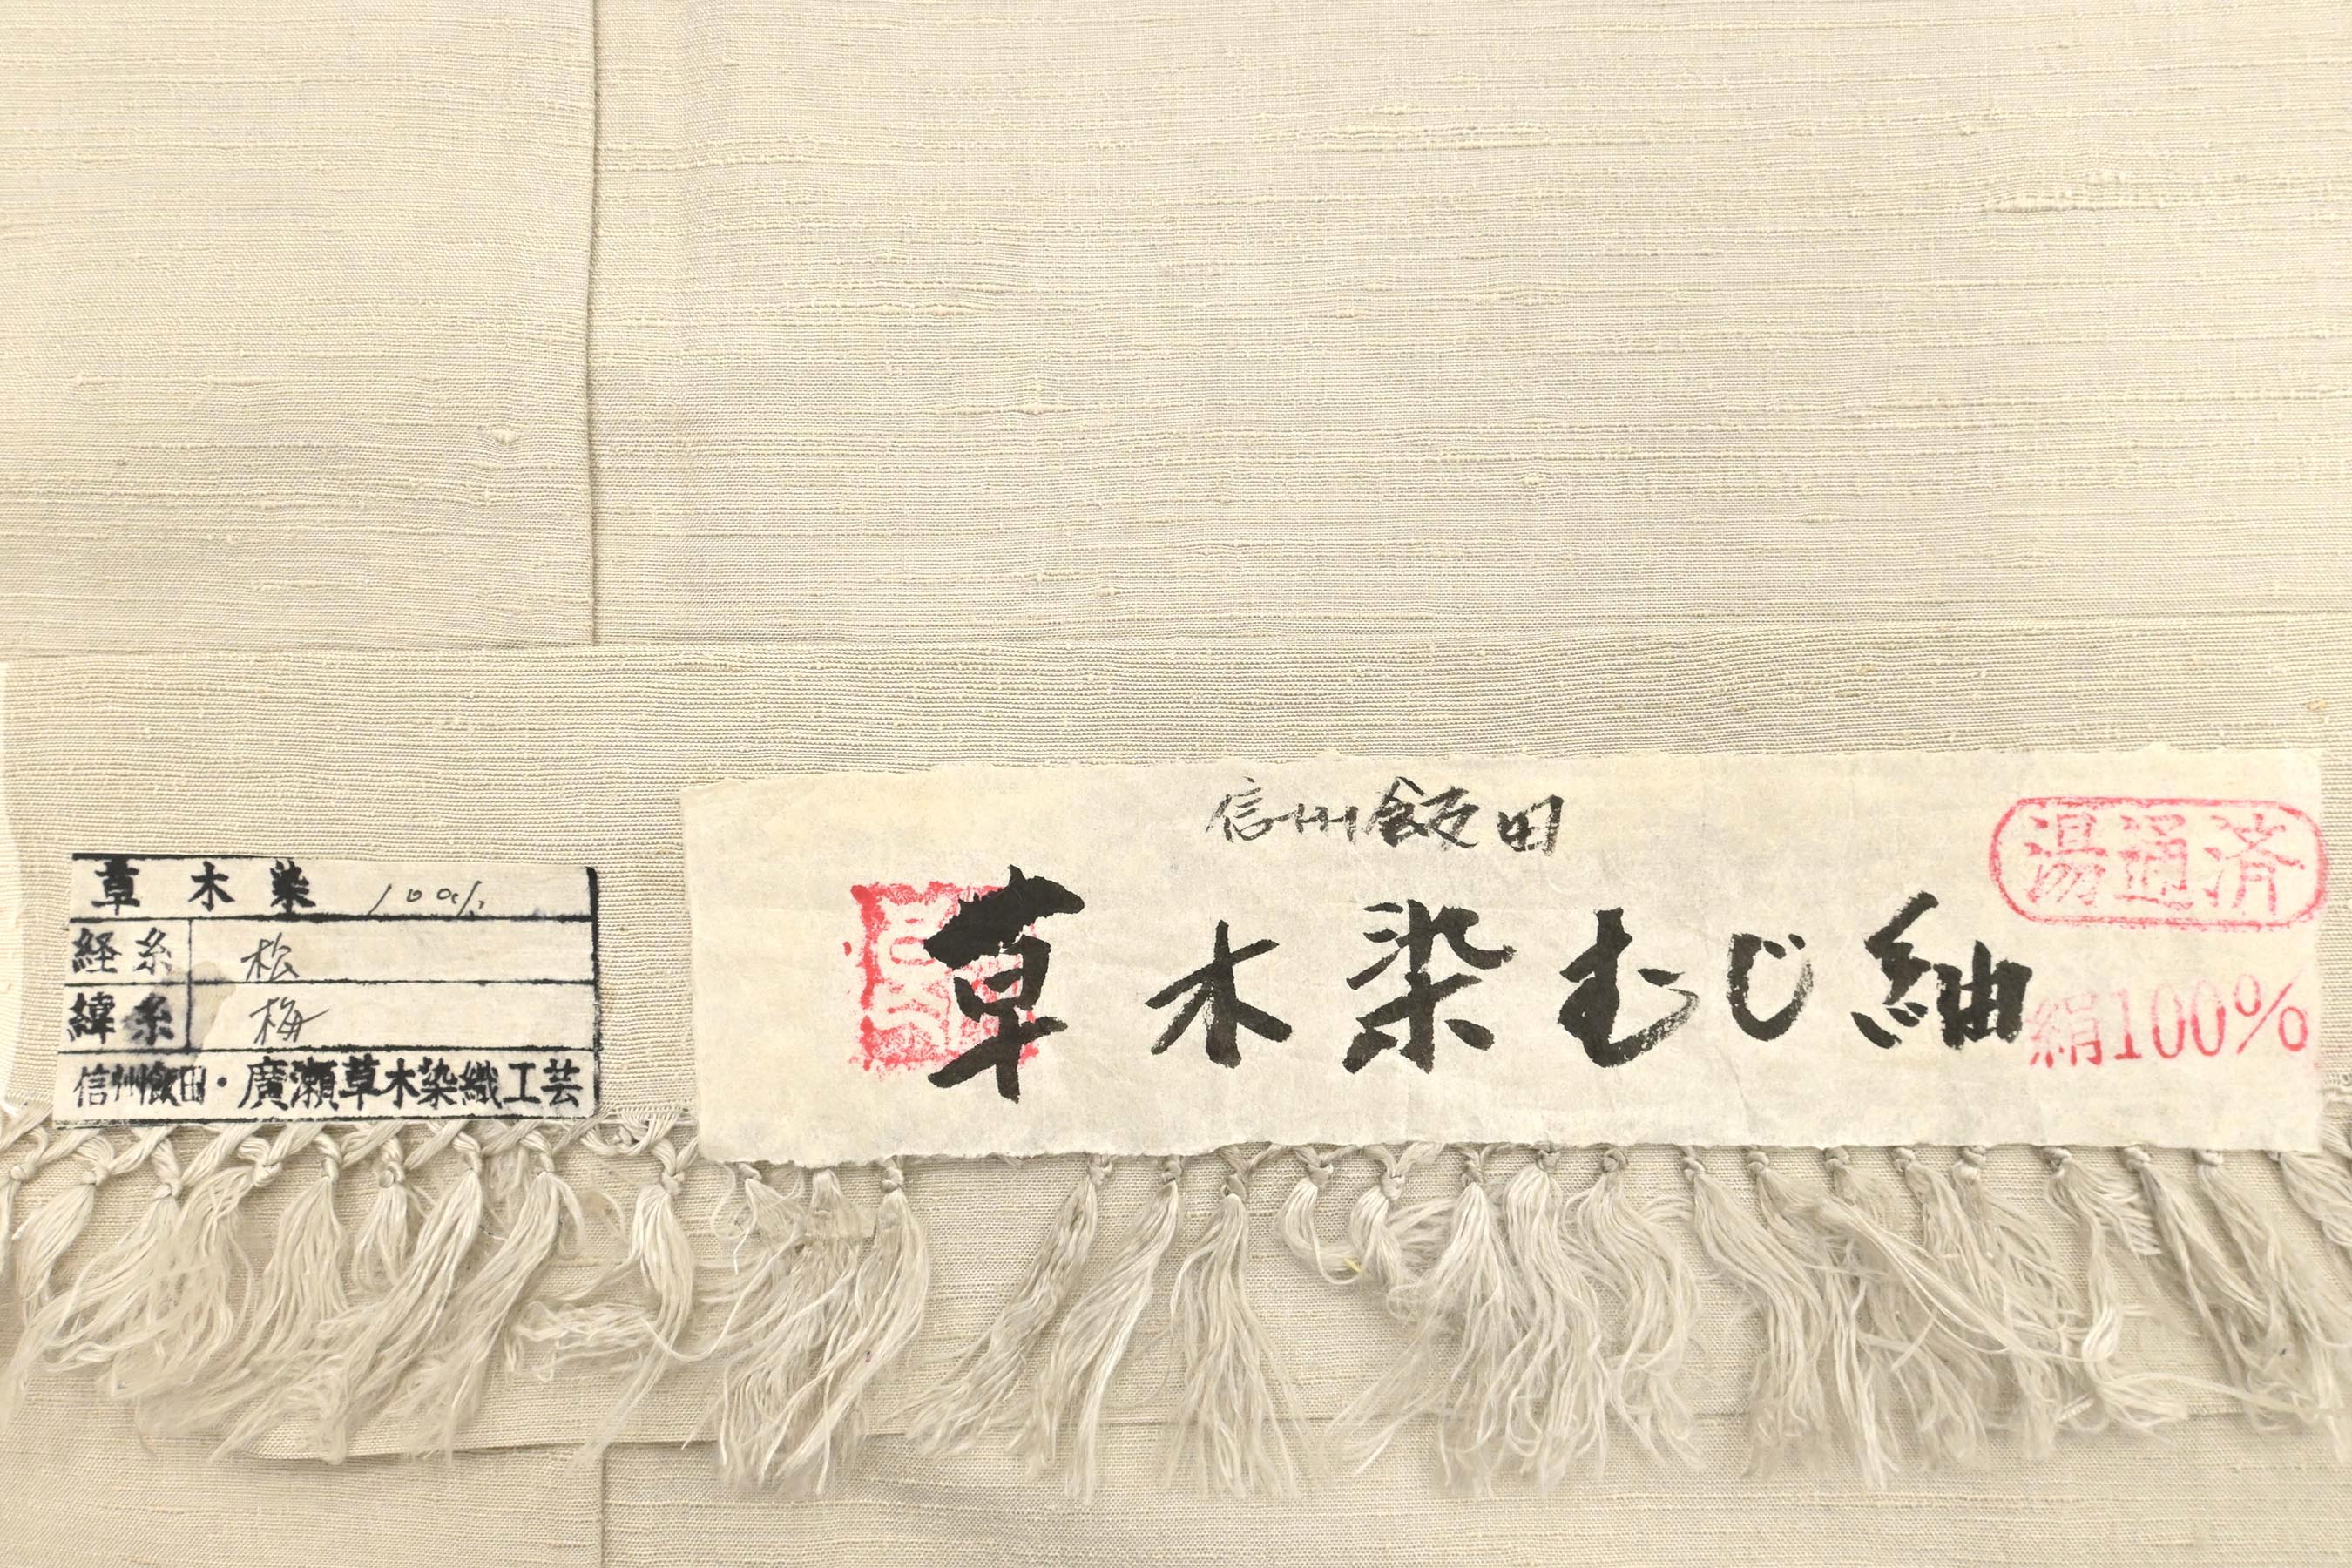 草木染 100%
経糸 松
緯糸 梅
信州飯田・廣瀬草木染織工芸
信州飯田
草木染むじ紬
湯通済
絹100%